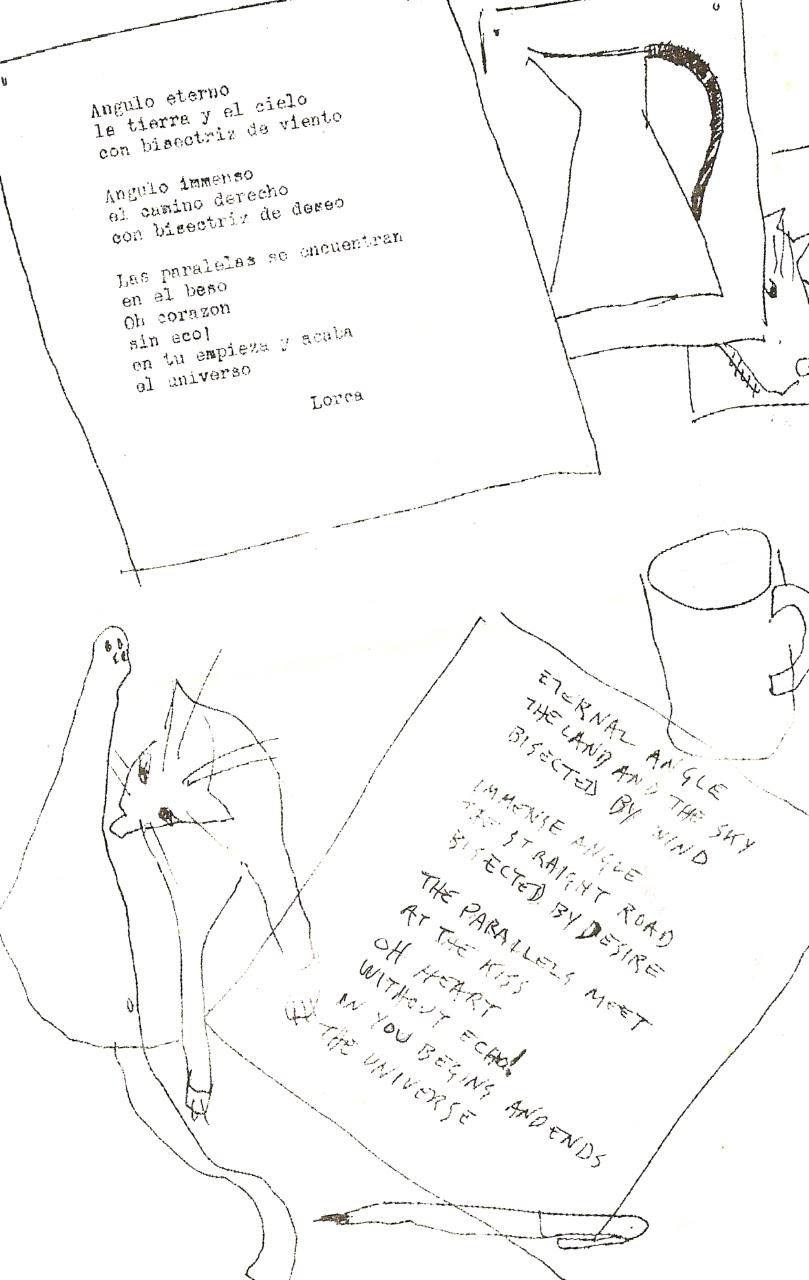 Angulo eterno
la tierra y el cielo
con bisectriz de viento
Angulo immenso
el camino derecho
con bisectriz de deseo
Las paralelas se encuentran
en el beso
Oh corazon
sin eco!
en tu empieza y acaba
el universo
Lorca
C
ETERNAL ANGLE
THE LAND AND THE SKY
BISECTED BY WIND
IMMENSE ANGLE
THE STRAIGHT ROAD
BISECTED BY DESIRE
THE PARALLELS MEET
AT THE KISS
OH HEART
WITHOUT ECHO!
IN YOU BEGINS AND ENDS
THE UNIVERSE